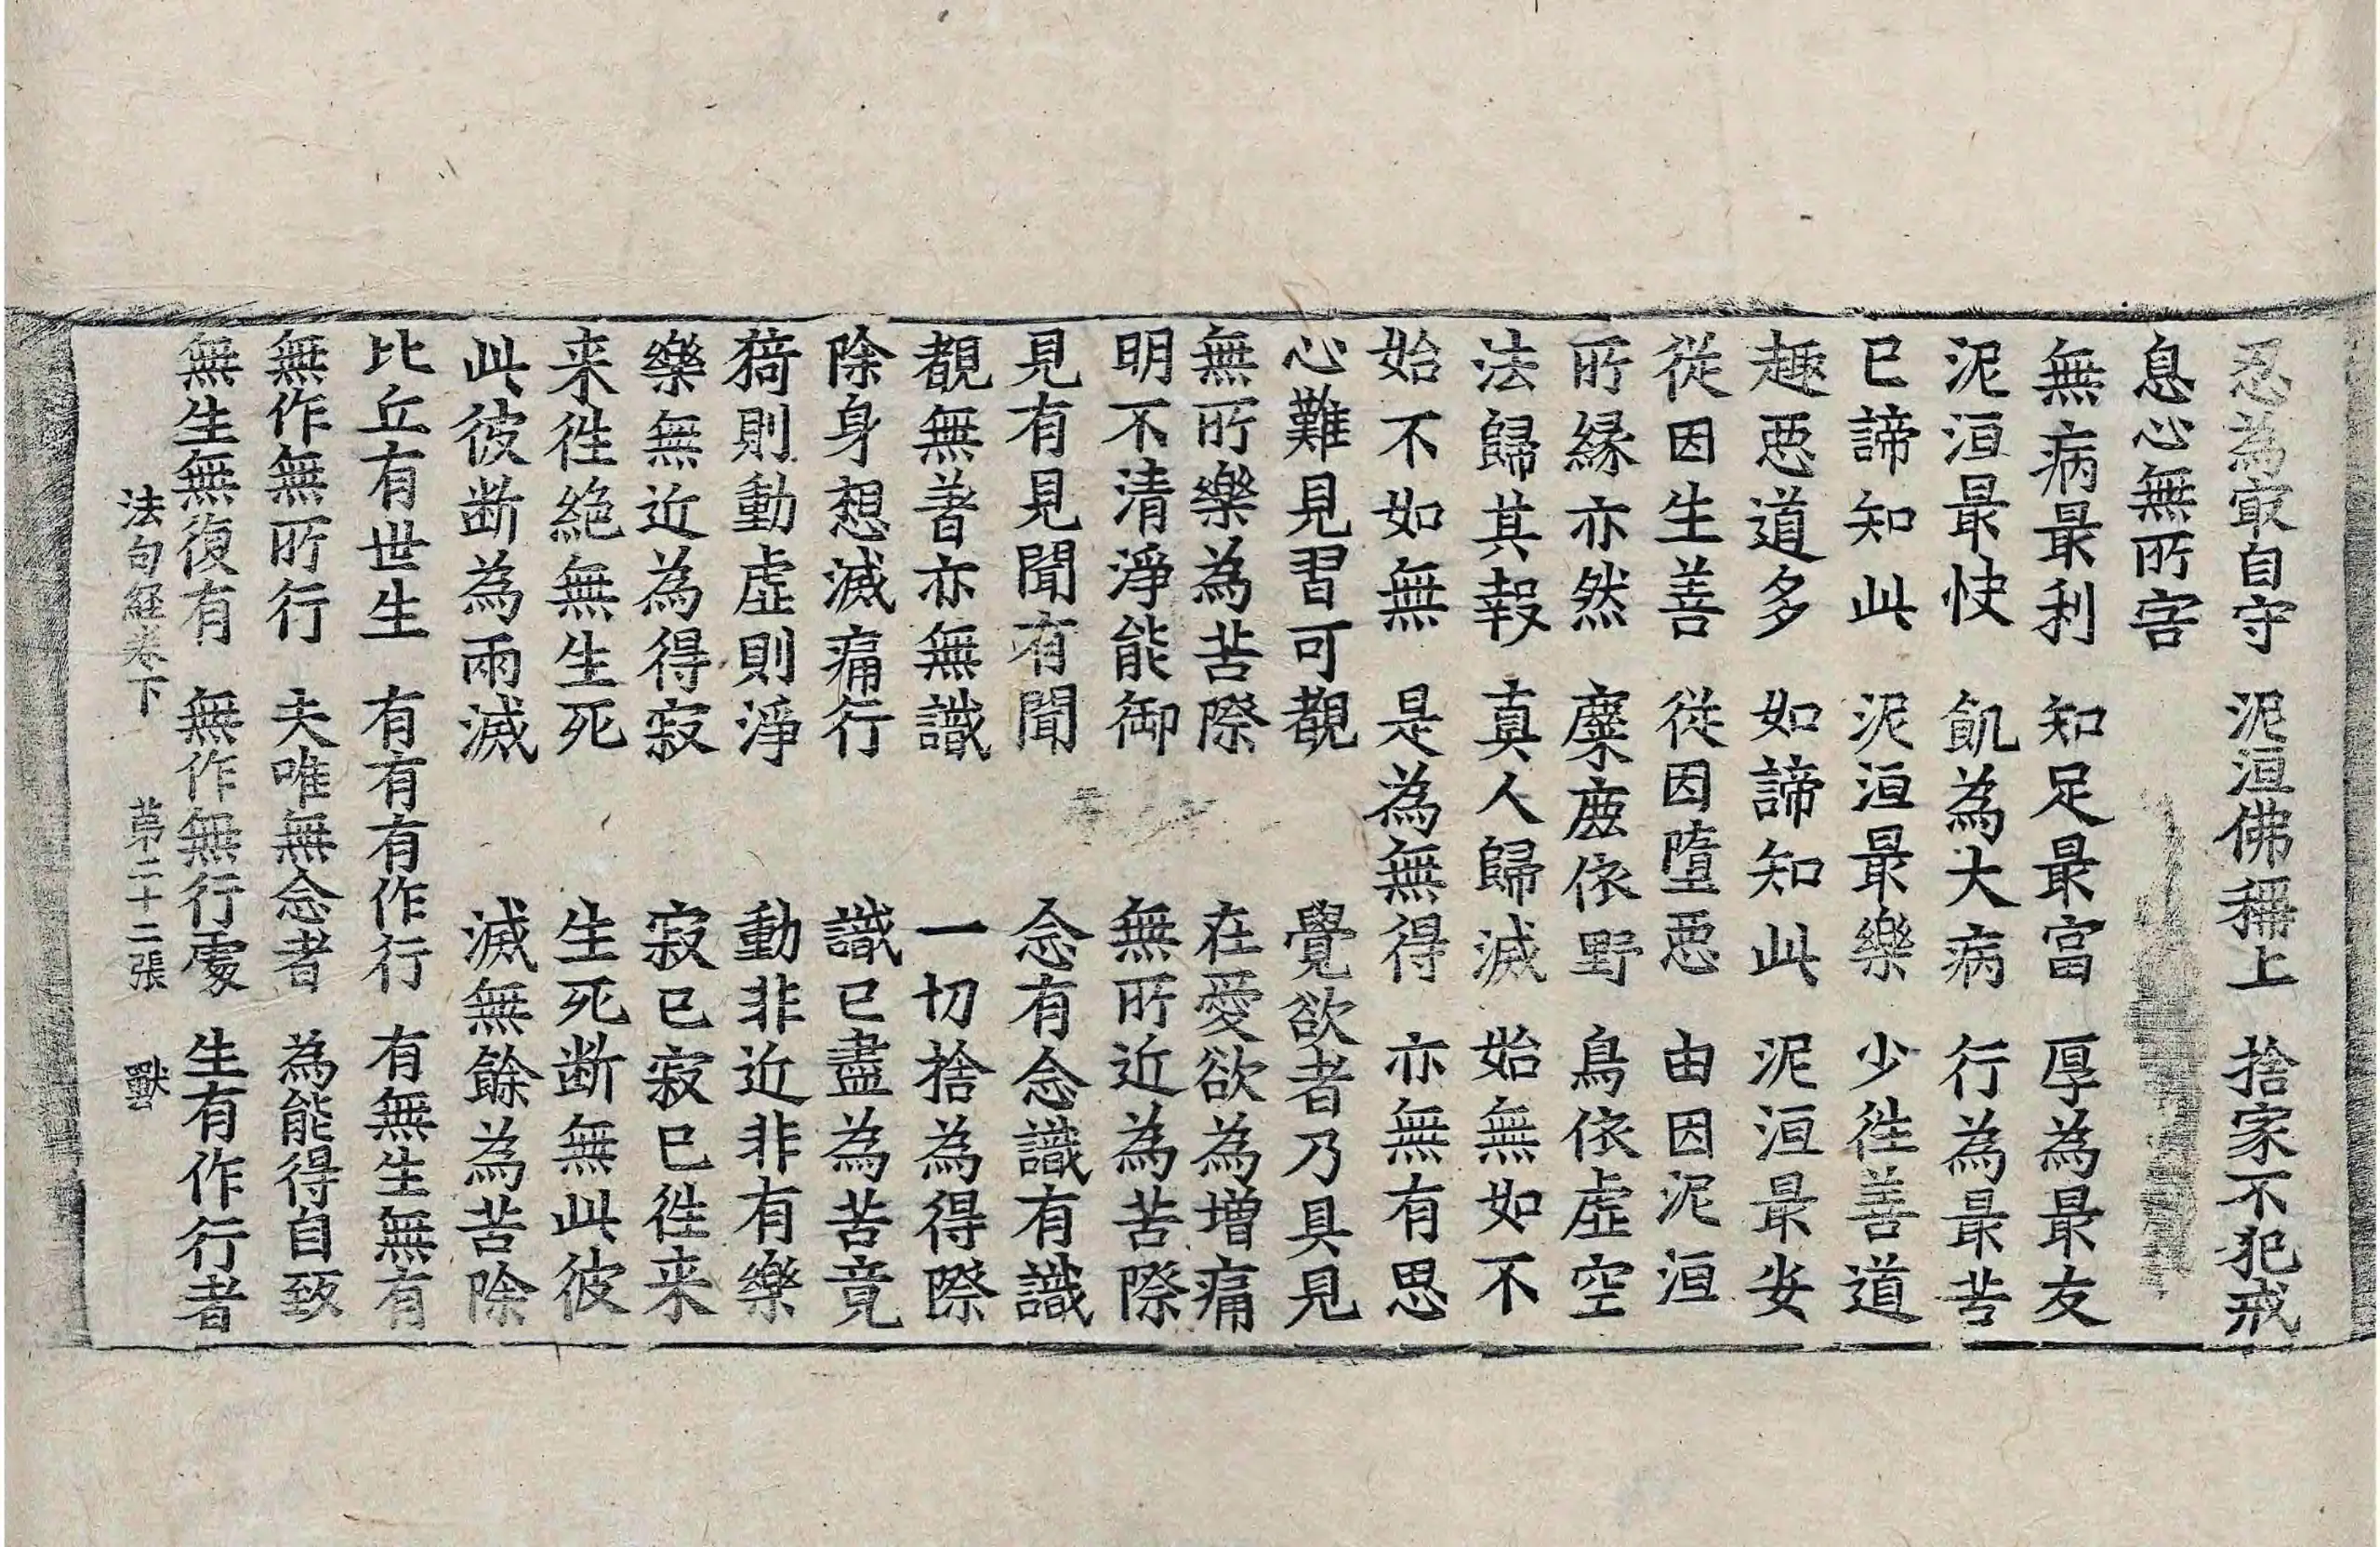 忍為冣自守　泥洹佛稱上　捨家不犯戒
息心無所害
無病最利　知足最富　厚為最友
泥洹最快　飢為大病　行為最苦
已諦知此　泥洹最樂　少往善道
趣惡道多　如諦知此　泥洹最安
從因生善　從因墮惡　由因泥洹
所縁亦然　麋鹿依野　鳥依虛空
法歸其報　真人歸滅　始無如不
始不如無　是為無得　亦無有思
心難見習可覩　覺欲者乃具見
無所樂為苦際　在愛欲為增痛
明不清淨能御　無所近為苦際
見有見聞有聞　念有念識有識
覩無著亦無識　一切捨為得際
除身想滅痛行　識已盡為苦竟
猗則動虛則淨　動非近非有樂
樂無近為得寂　寂已寂已往来
来往絶無生死　生死断無此彼
此彼断為兩滅　滅無餘為苦除
比丘有世生　有有有作行　有無生無有
無作無所行　夫唯無念者　為能得自致
無生無復有　無作無行處　生有作行者
法句經卷下　第二十二張　獸